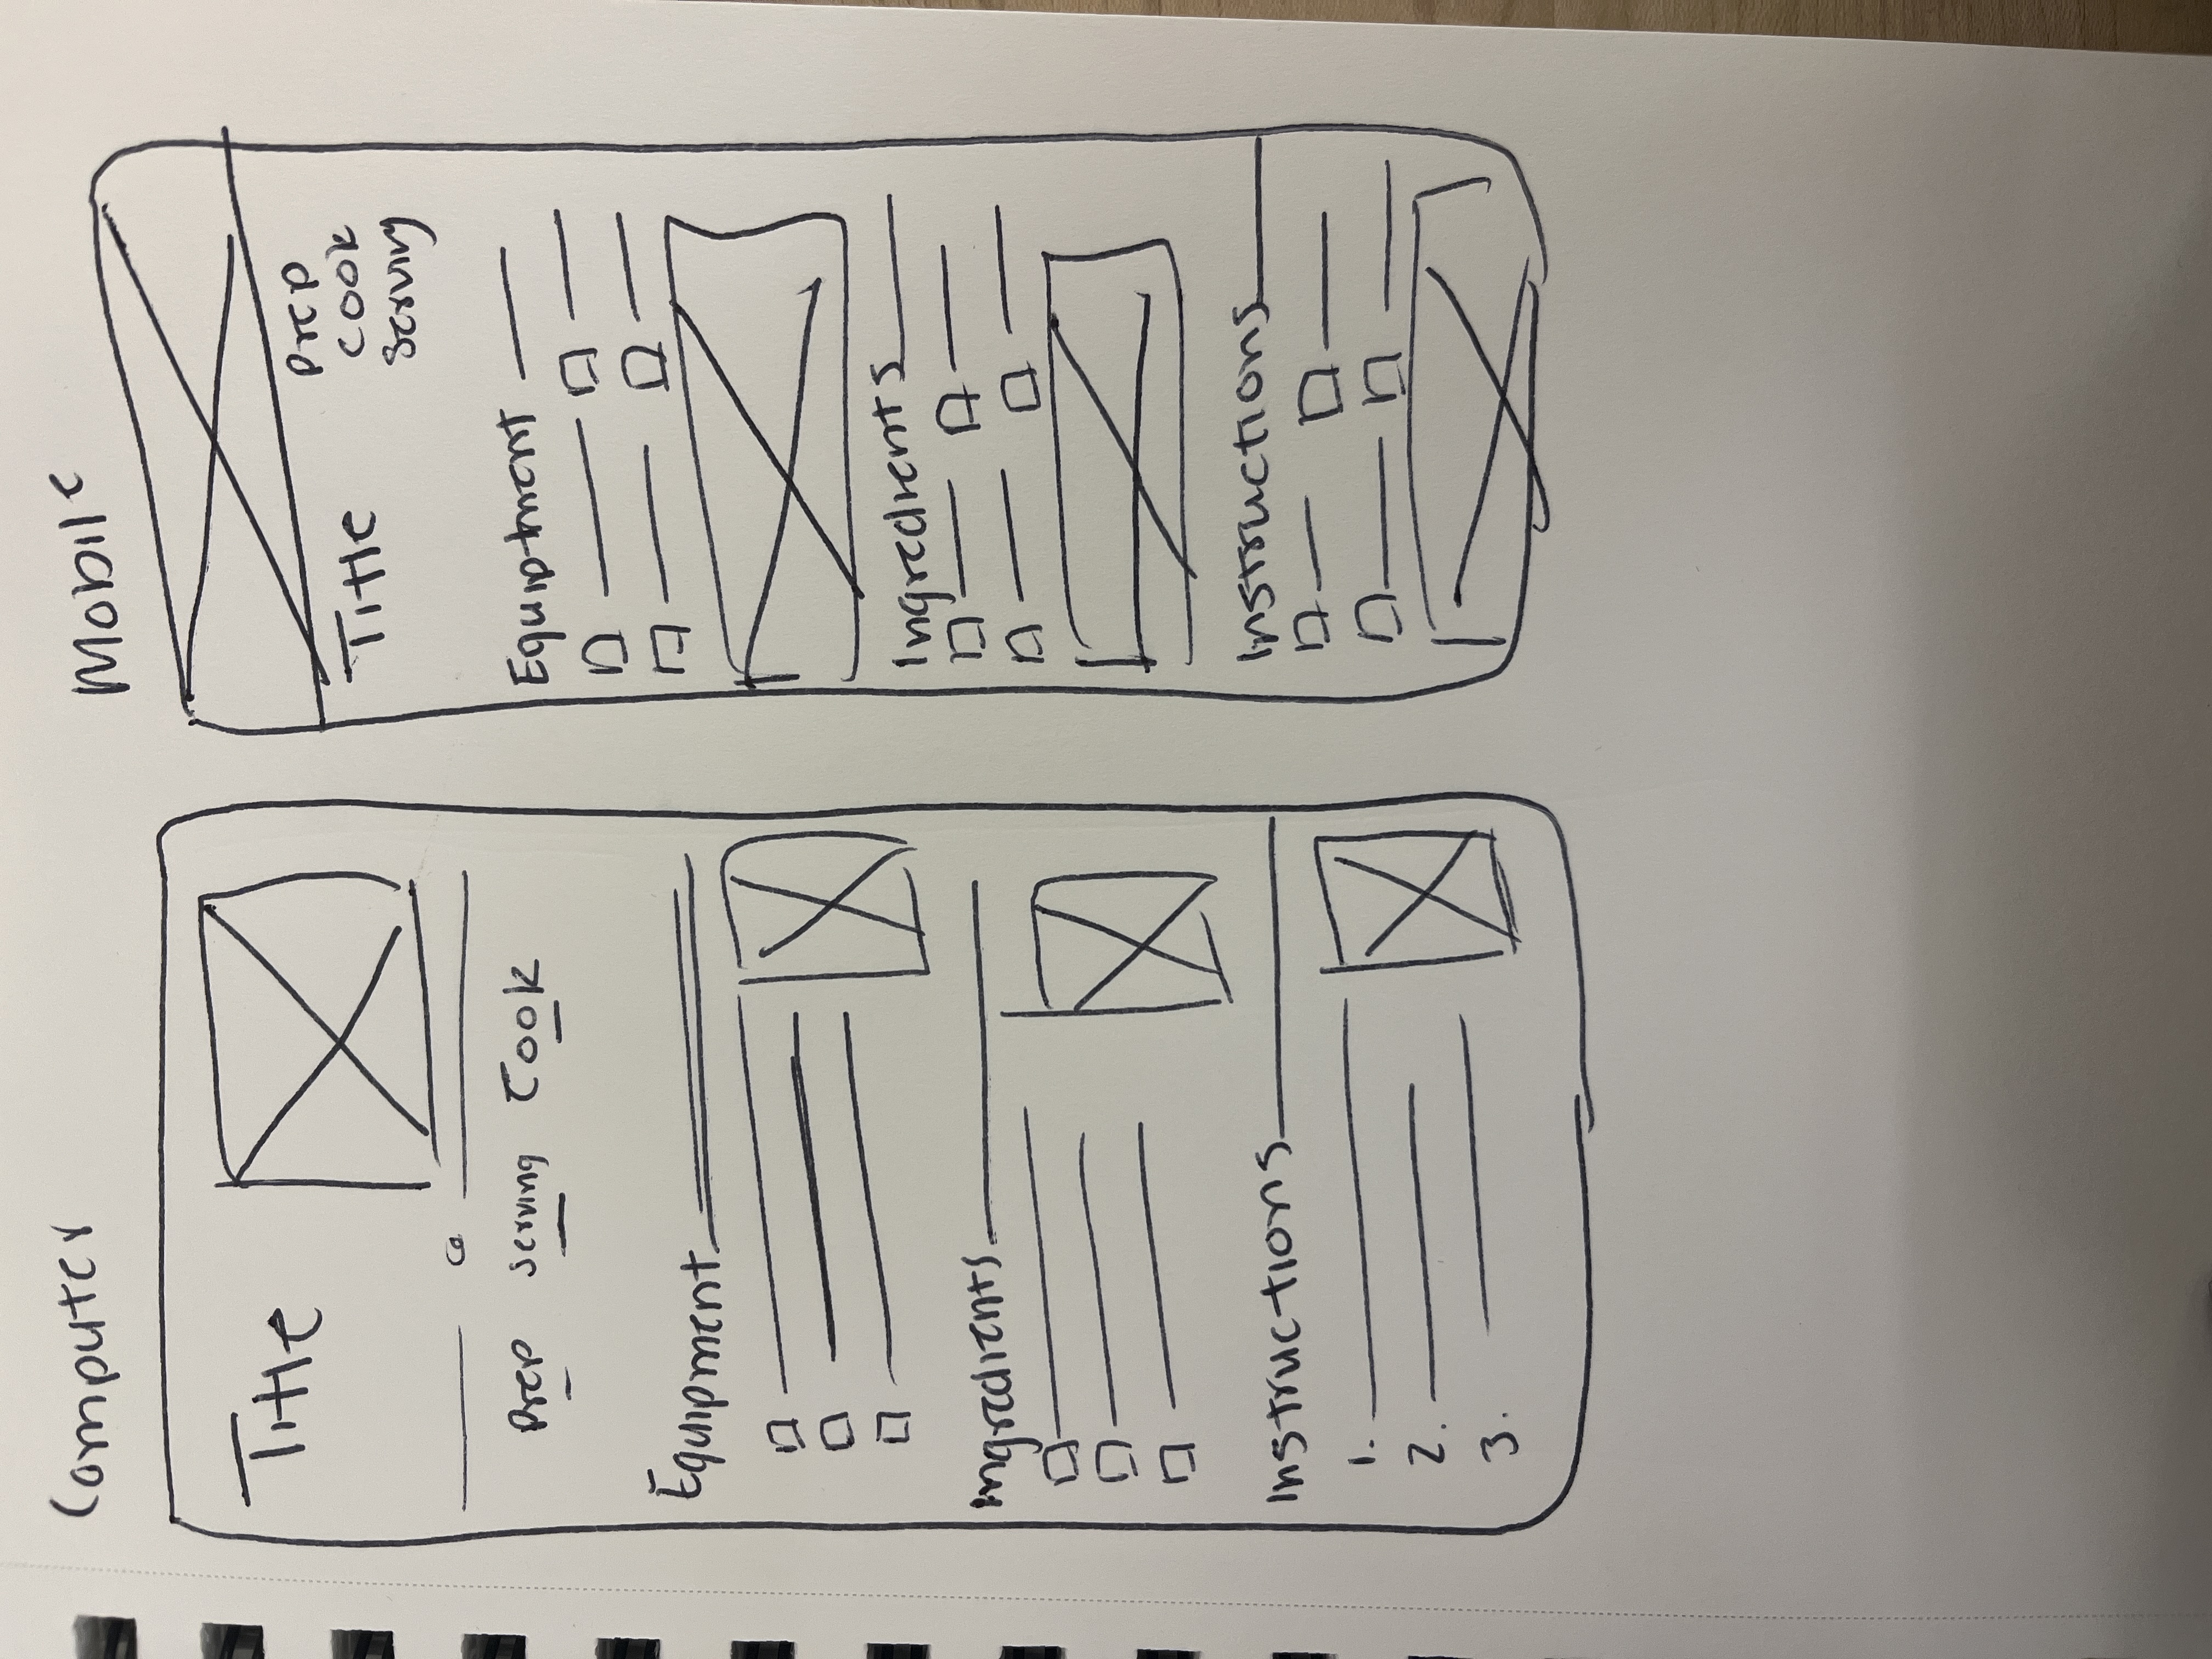 Computer
Title
Prep serving Cook
Equipment
Ingredients
Instructions
1.
2.
3.
Mobile
Prep
Title
cook
serving
Equiptment
Ingredients
Instructions